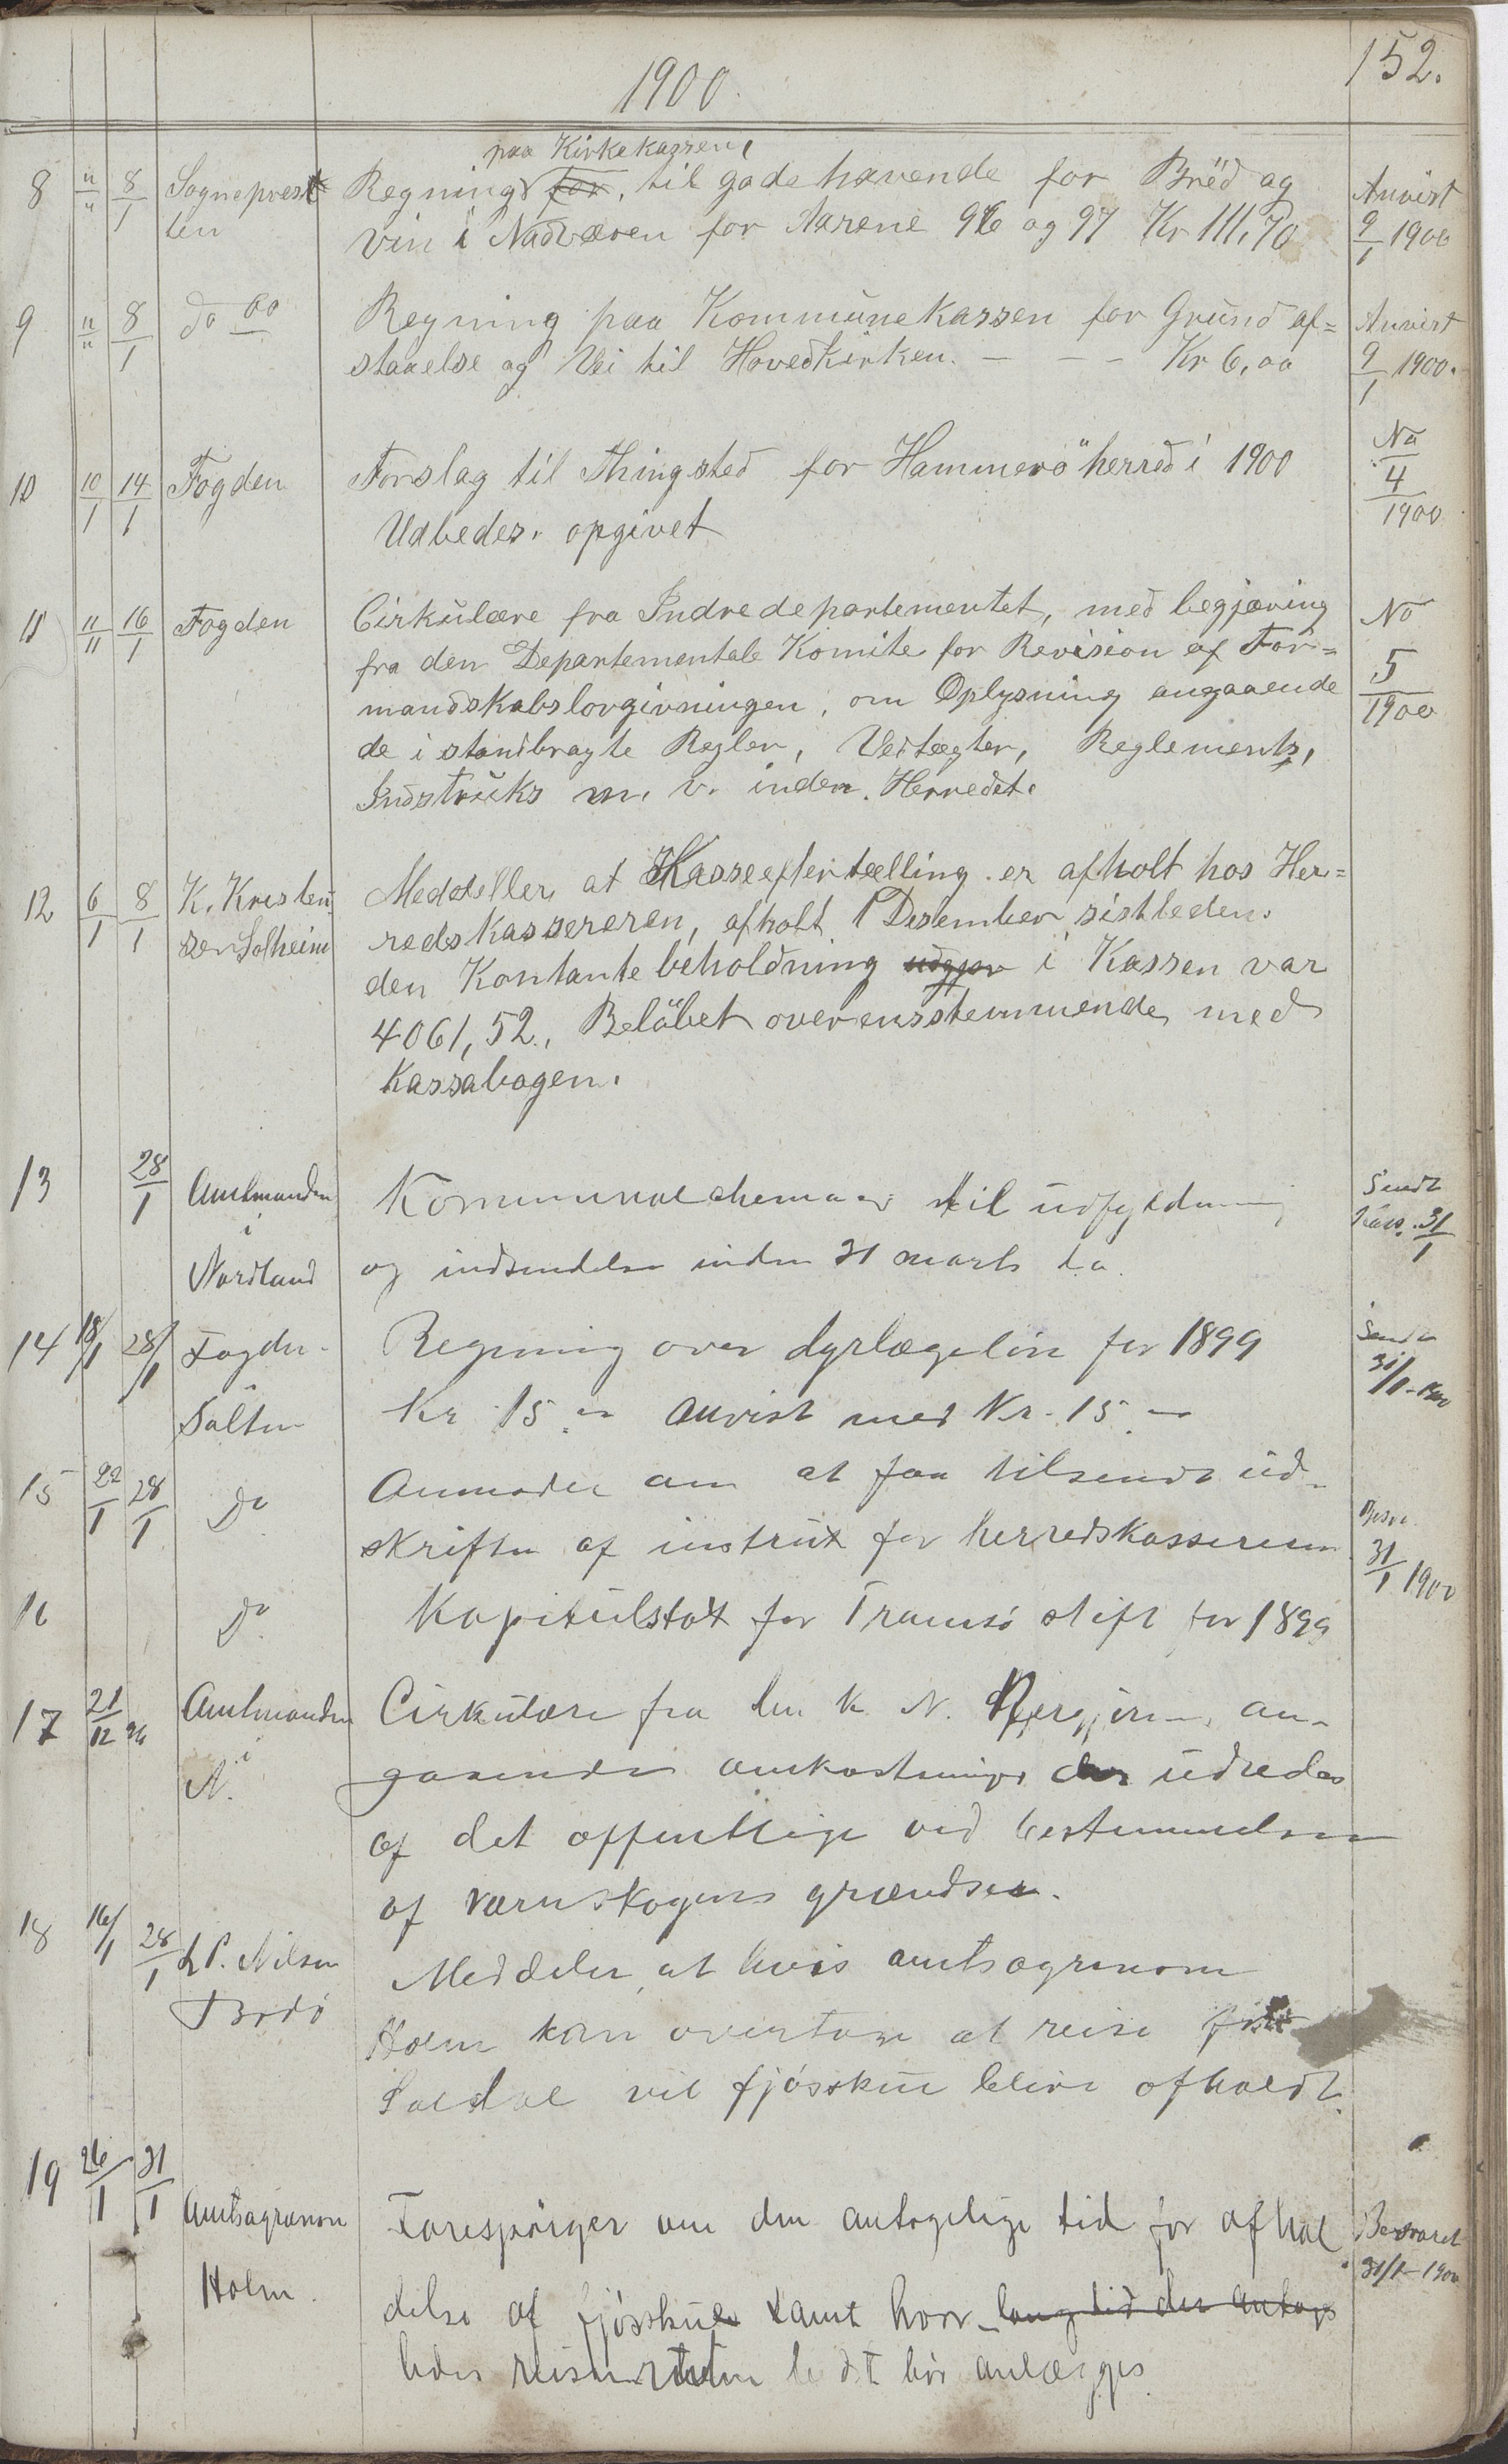 152.
1900.
paa Kirkekassen,
8 "/" 8/1 Sognepresten Regning for, til gode havende for Bröd og Anvist
vin i Nadveren for Aarene 96 og 97 Kr 111,70 9/1 1900
9 "/" 8/1 do do Regning paa Kommunekassen for Grund af= Anvist
staaelse og Vei til Hovedkirken. — — — Kr 6,00 9/1 1900.
10 10/1 14/1 Fogden Forslag til Thingsted for Hammerö herred i 1900 No 4/1900
Udbedes. opgivet
11 "/" 16/1 Fogden Cirkulære fra Indredepartementet, med begjæring No 5/1900
fra den Departementale Komite for Revision af For=
mandskabslovgivningen, om Oplysning angaaende
de i standbragte Regler, Vedtægter, Reglements,
Indstruks m. v. inden Herredet.
12 6/1 8/1 K. Kristensen Solheim Meddeller at Kasseeftertælling er afholt hos Her=
redskassereren, afholt 1 Desember sistleden.
den Kontante beholdning udgjør i Kassen var
4061,52., Beløbet overensstemmende med
Kassabogen.
13 28/1 Amtmanden i Nordland Kommunalchemaer til udfyldning Sendt Kass. 31/1
og indsendelse inden 31 marts d.a.
14 18/1 28/1 Fogden Salten Regning over dyrlægelön for 1899 Sendt 31/1-1900
Kr 15.— anvist med Kr. 15.—
15 22/1 28/1 Do Anmoder om at faa tilsendt ud-
skrifter af instrux for herredskassereren 31/1 1900
16 Do Kapitelstakt for Tromsö stift for 1899
17 21/12 Amtmanden i N. Cirkulære fra den k. N. Regjering an-
gaaende omkostninger der udredes
af det offentlige ved bestemmelsen
af værnskogens grændser.
18 16/1 28/1 L P. Nilsen Bodö Meddeler, at hvis amtsagronom
Holm kan overtage at reise
vil fjösskue blive afholdt.
19 26/1 31/1 Amtsagronom Holm. Forespörger om den antagelige tid for afhol Besvaret 31/1-1900
delse af fjösskue samt hvor lang tid der antages
ledes reiseruten bedst bör anlægges